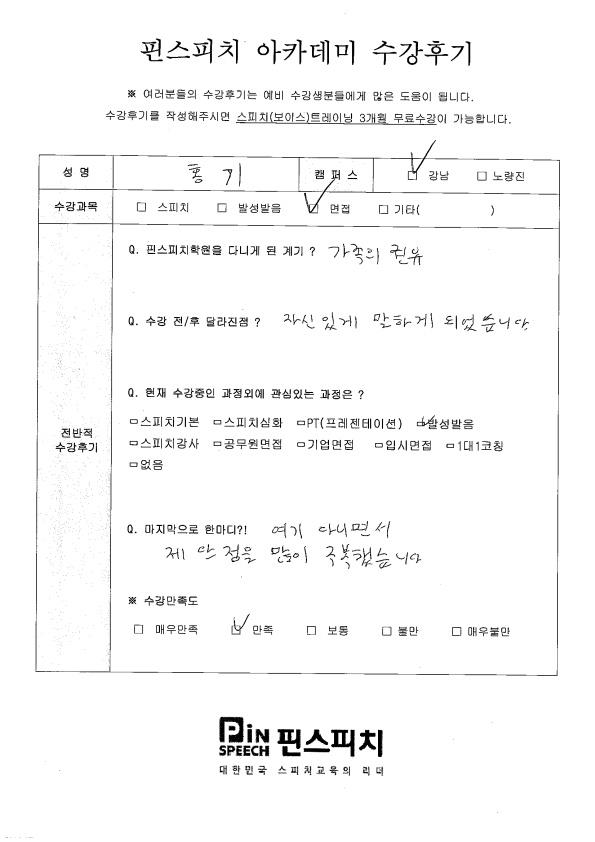 핀스피치 아카데미 수강후기
※ 여러분들의 수강후기는 예비 수강생분들에게 많은 도움이 됩니다.
수강후기를 작성해주시면 스피치(보이스)트레이닝 3개월 무료수강이 가능합니다.
성 명 홍 기 캠 퍼 스 ☑ 강남 □ 노량진
수강과목 □ 스피치 □ 발성발음 ☑ 면접 □ 기타( )
전반적
수강후기
Q. 핀스피치학원을 다니게 된 계기 ? 가족의 권유
Q. 수강 전/후 달라진점 ? 자신있게 말하게 되었습니다.
Q. 현재 수강중인 과정외에 관심있는 과정은 ?
□스피치기본 □스피치심화 □PT(프레젠테이션) ☑발성발음
□스피치강사 □공무원면접 □기업면접 □입시면접 □1대1코칭
□없음
Q. 마지막으로 한마디?! 여기 다니면서
제 단점을 많이 극복했습니다
※ 수강만족도
□ 매우만족 ☑ 만족 □ 보통 □ 불만 □ 매우불만
PiN SPEECH 핀스피치
대한민국 스피치교육의 리더